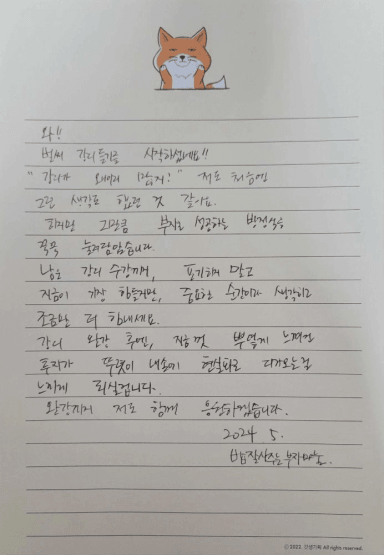 와!!
벌써 강의 듣기를 시작하셨네요!!
"강의가 왜이리 많지?" 저도 처음엔
그런 생각도 했던 것 같아요.
하지만 그만큼 부자로 성공하는 방정식을
꾹꾹 눌러담았습니다.
남은 강의 수강까지, 포기하지 말고
지금이 가장 힘들지만, 중요한 순간이라 생각하고
조금만 더 힘내세요.
강의 완강 후엔, 지금껏 뿌옇게 느껴진
투자가 뚜렷이 내 눈에 현실화로 다가오는걸
느끼게 되실겁니다.
완강까지 저도 함께 응원하겠습니다.
2024 5.
부자
© 2023. All rights reserved.